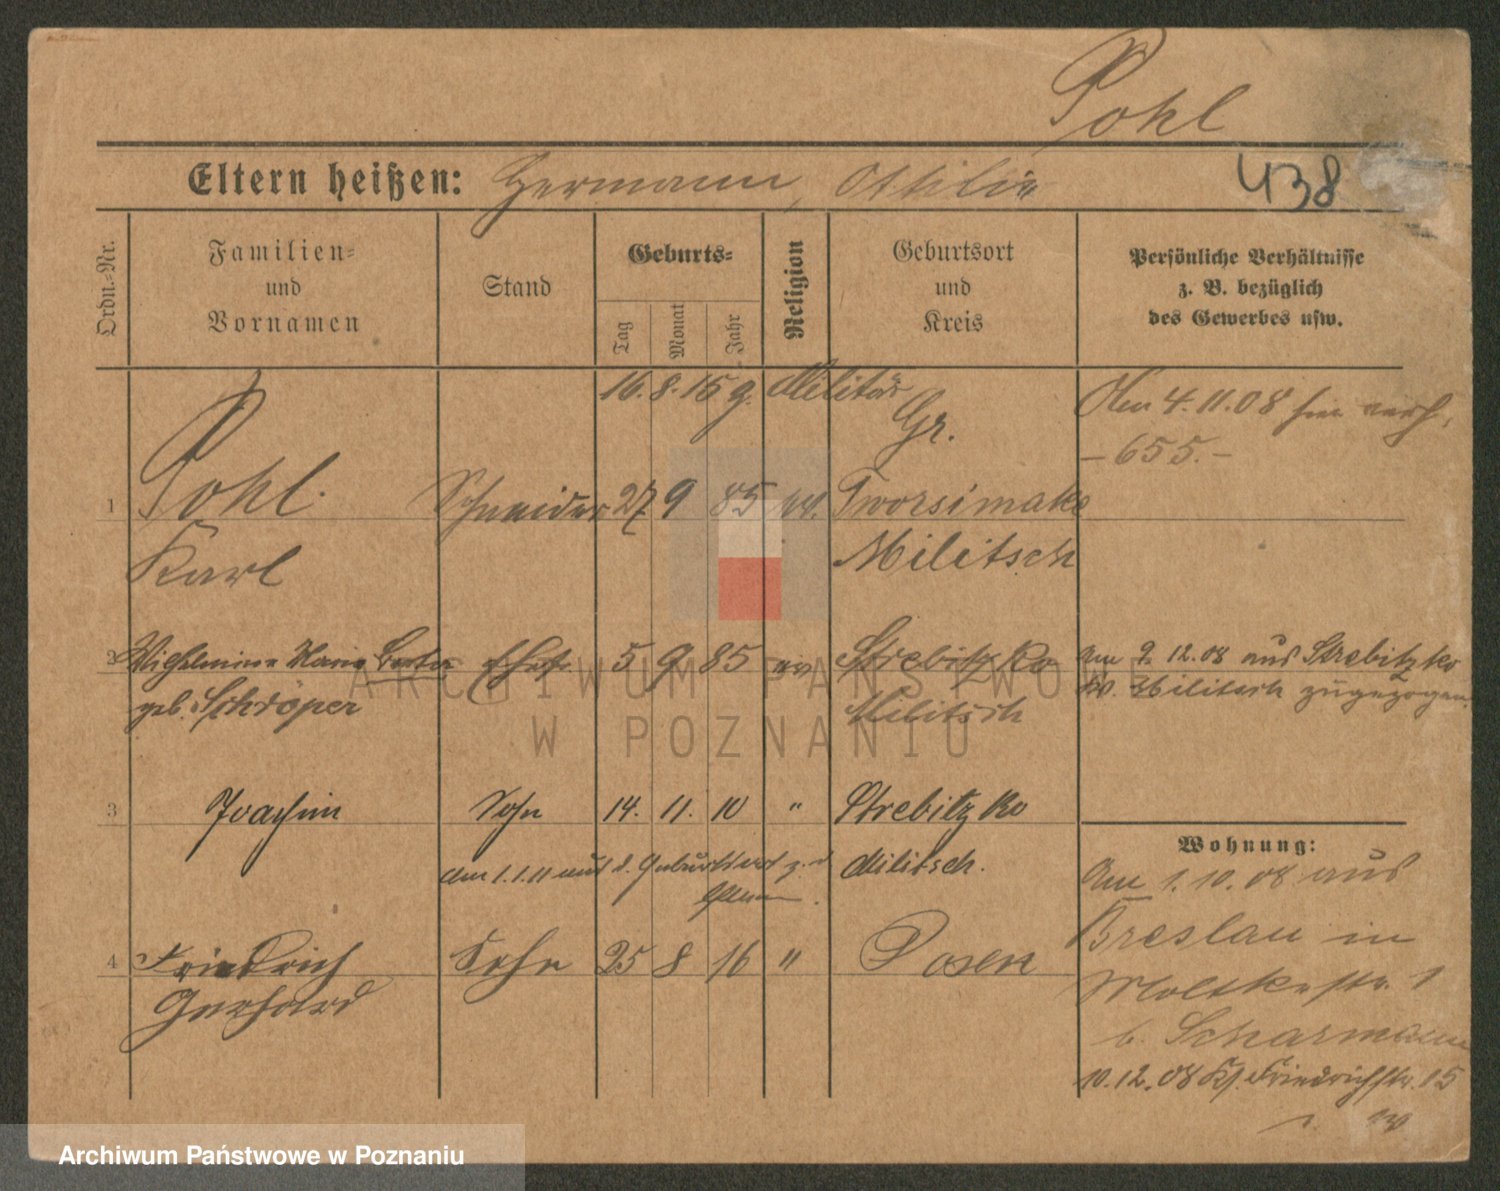 Pohl
Eltern heißen: Hermann, Ottilie 438
Ordn.-Nr.
Familien-
und
Vornamen
Stand
Geburts-
Tag
Monat
Jahr
Religion
Geburtsort
und
Kreis
Persönliche Verhältnisse
z. B. bezüglich
des Gewerbes usw.
16. 8. 15 g. Militär
Am 4.11.08 hier verh.
- 655. -
Gr.
1 Pohl. Schneider 27 9 85 ev. Tworsimake
Karl Militsch
2 Wilhelmine Marie Berta Ehefr. 5 9 85 ev. Strebitzko
geb. Schröper Militsch
Am 9. 12. 08 aus Strebitzko
Kr. Militsch zugezogen.
3 Joachim Sohn 14. 11. 10 " Strebitzko
am 1.1.11 aus d. Geburtsort z. d. Militsch.
Eltern.
4 Friedrich Sohn 25 8 16 " Posen
Gerhard
Wohnung:
Am 1. 10. 08 aus
Breslau in
Moltkestr. 1
b. Scharmann
10.12.08 Friedrichstr. 15
ARCHIWUM PAŃSTWOWE
W POZNANIU
Archiwum Państwowe w Poznaniu